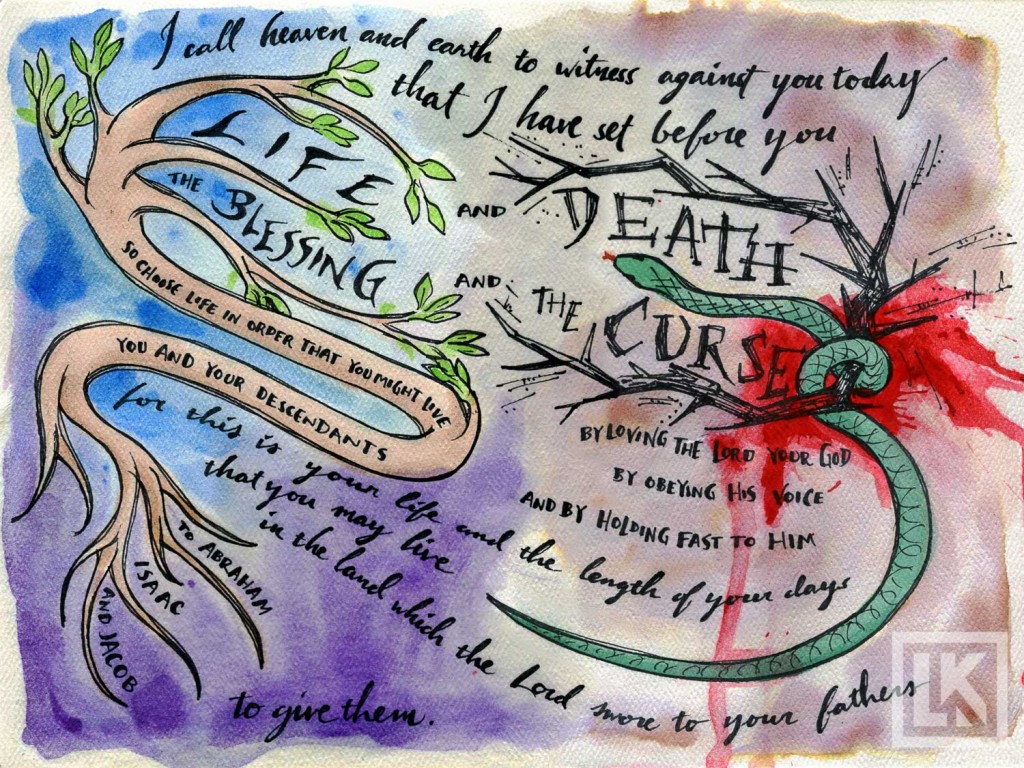 I call heaven and earth to witness against you today
that I have set before you
LIFE
AND
DEATH
THE BLESSING
AND
THE CURSE
SO CHOOSE LIFE IN ORDER THAT YOU MIGHT LIVE
YOU AND YOUR DESCENDANTS
BY LOVING THE LORD YOUR GOD
BY OBEYING HIS VOICE
AND BY HOLDING FAST TO HIM
for this is your life and the length of your days
that you may live
in the land which the Lord swore to your fathers
TO ABRAHAM
ISAAC
AND JACOB
to give them.
LK